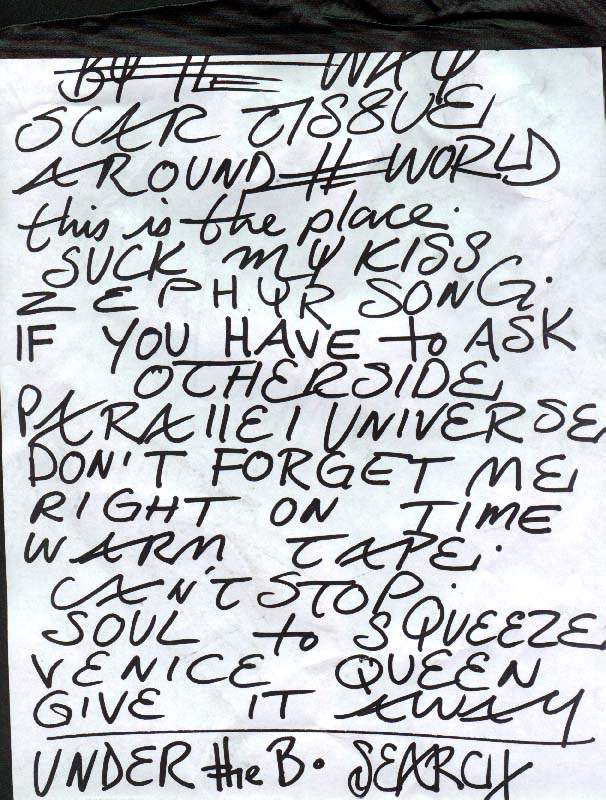 BY THE WAY
SCAR TISSUE
AROUND the WORLD
this is the place.
SUCK MY KISS
ZEPHYR SONG.
IF YOU HAVE to ASK
OTHERSIDE
PARAllEl UNIVERSE
DON'T FORGET ME
RIGHT ON TIME
WARM TAPE.
CAN'T STOP.
SOUL to SQUEEZE
VENICE QUEEN
GIVE IT AWAY
UNDER the B. SEARCH